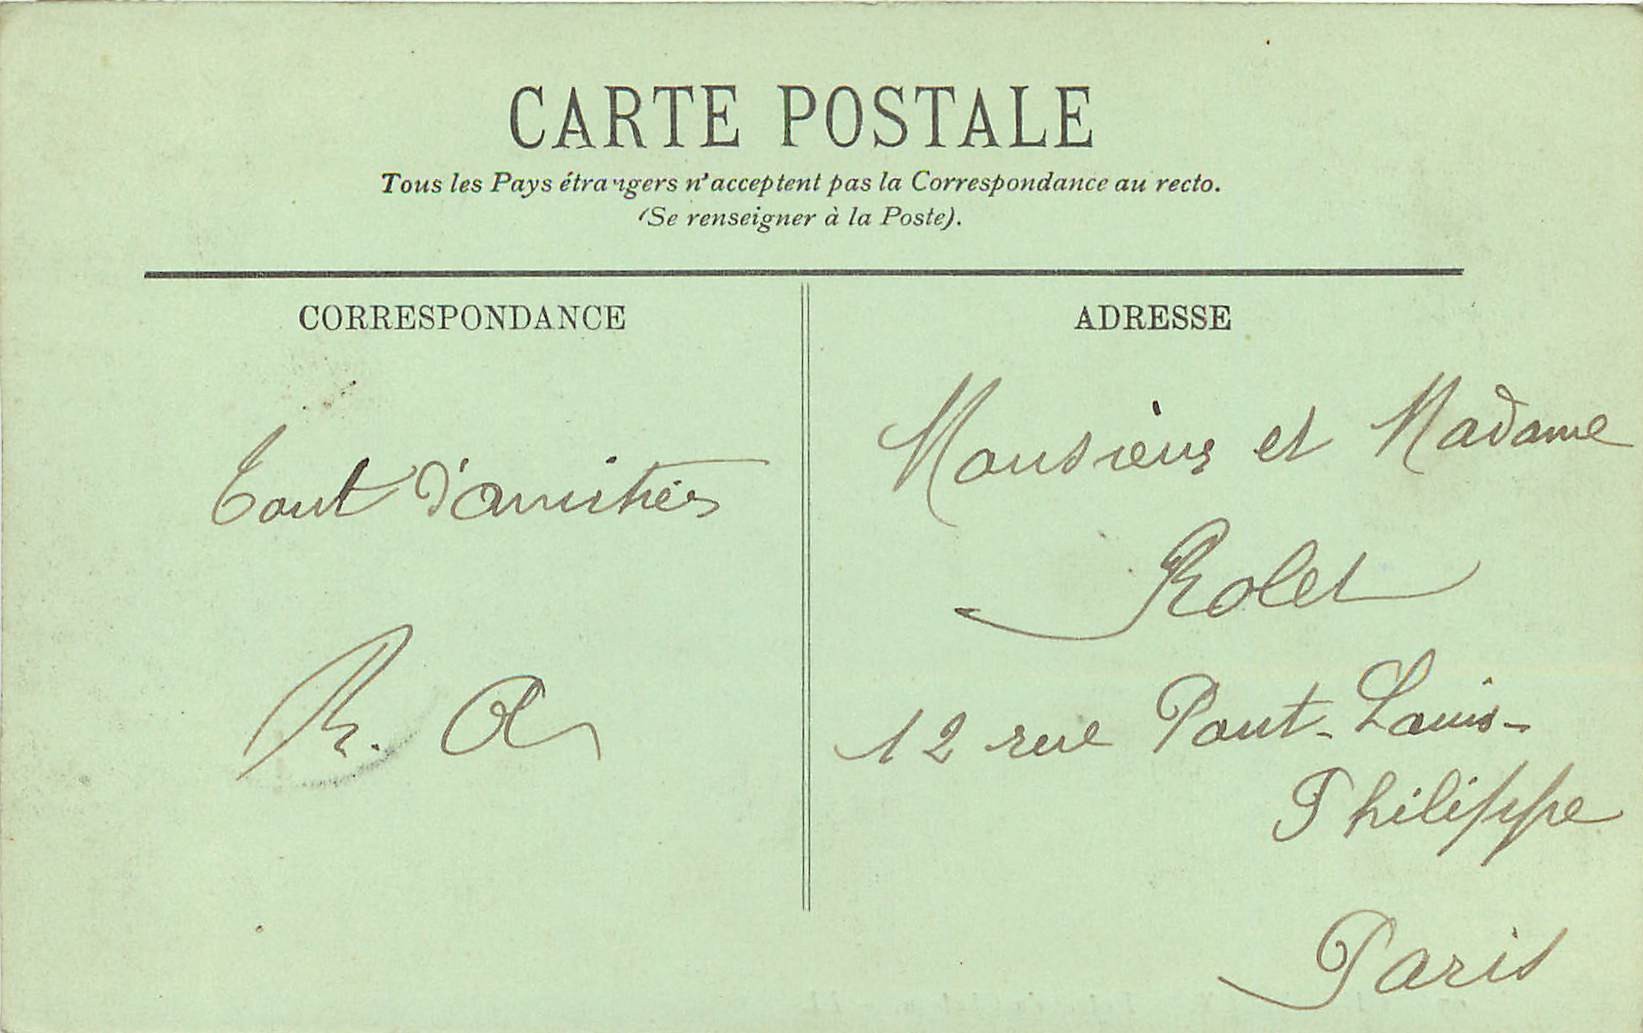 CARTE POSTALE
Tous les Pays étrangers n'acceptent pas la Correspondance au recto.
(Se renseigner à la Poste).
CORRESPONDANCE
Tout d'amitiés
R. A
ADRESSE
Monsieur et Madame
Rolet
12 rue Pont-Louis-
Philippe
Paris